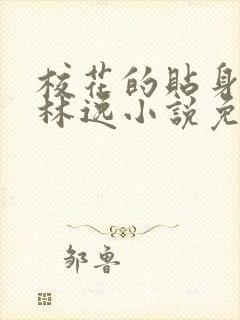 校花的貼身
林逸小說免
邹鲁